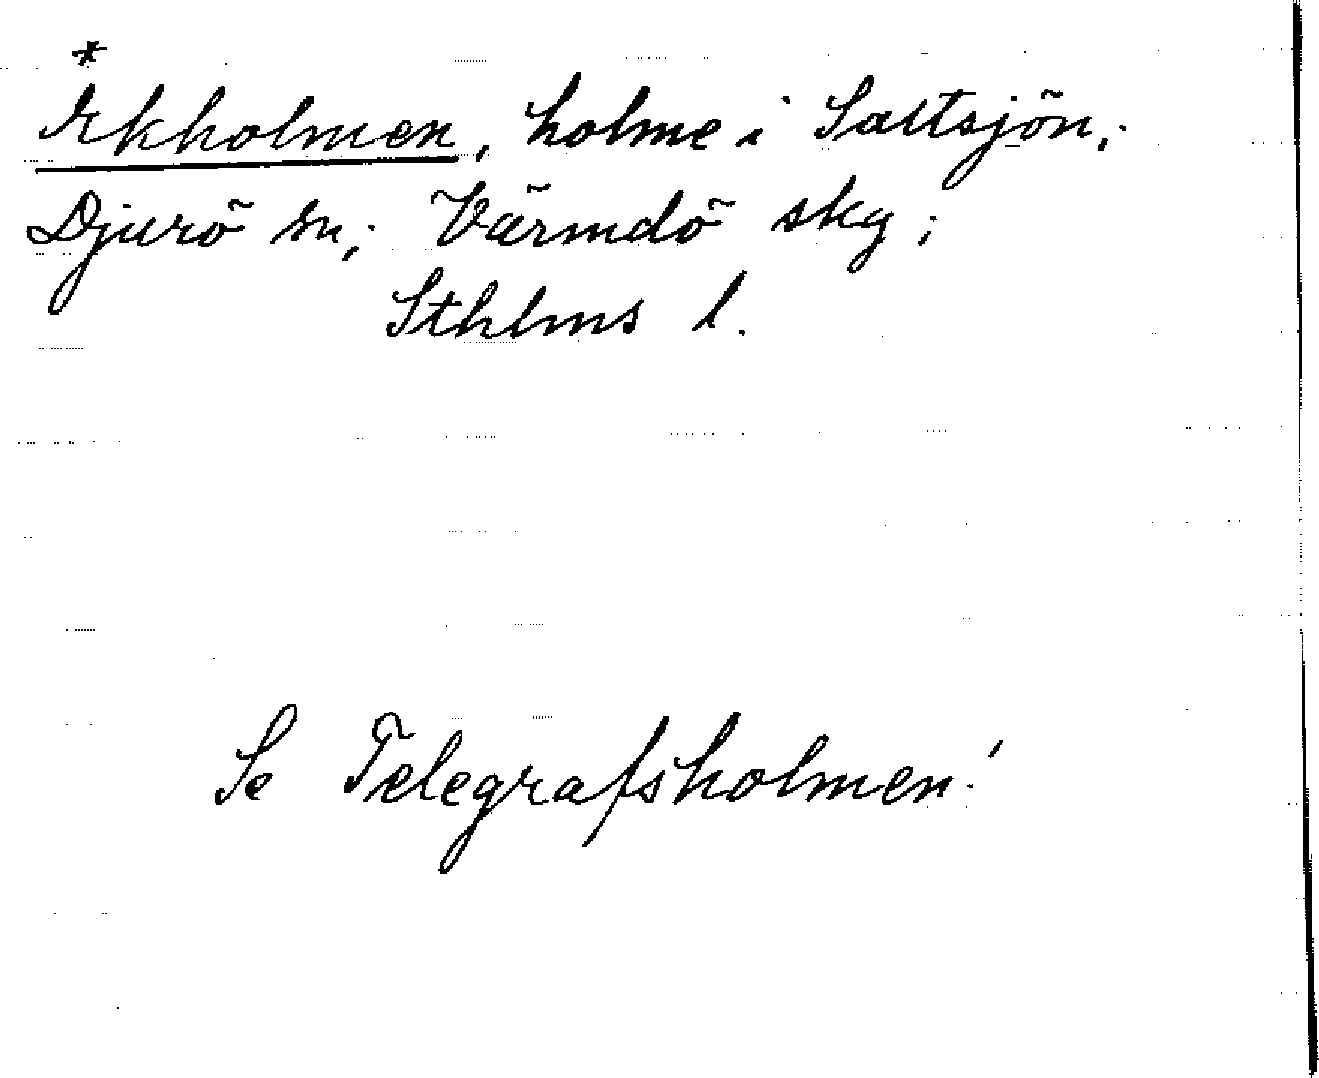 *
Ekholmen, holme i Saltsjön,
Djurö sn; Värmdö skg;
Sthlms l.
Se Telegrafsholmen!